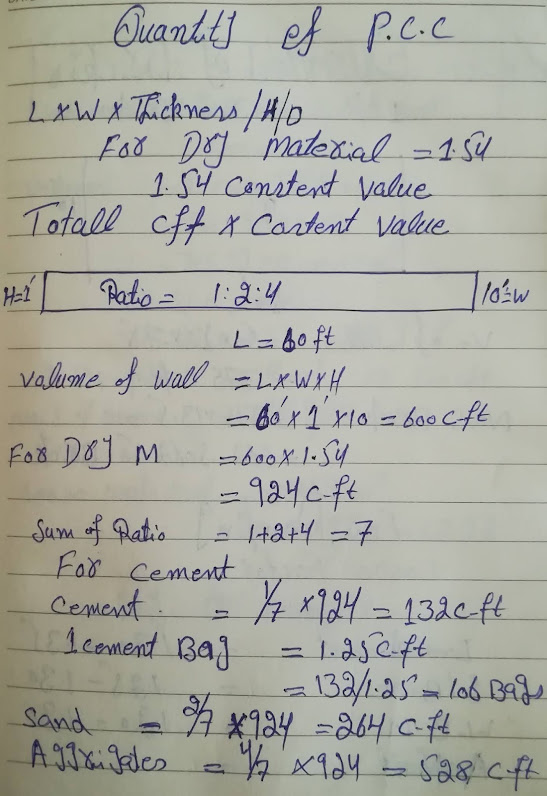 Quantity of P.C.C
L x W x Thickness / H/D
For Dry material = 1.54
1.54 Constent Value
Totall cff x Constent Value
H=1' Ratio = 1:2:4 10'=W
L = 60ft
Valume of Wall = L x W x H
= 60' x 1' x 10 = 600 c-ft
For Dry M = 600 x 1.54
= 924 c-ft
Sum of Ratio = 1+2+4 = 7
For Cement
Cement. = 1/7 x 924 = 132 c-ft
1 cement Bag = 1.25 c-ft
= 132/1.25 = 106 Bags
Sand = 2/7 x 924 = 264 c-ft
Aggrigates = 4/7 x 924 = 528 c-ft